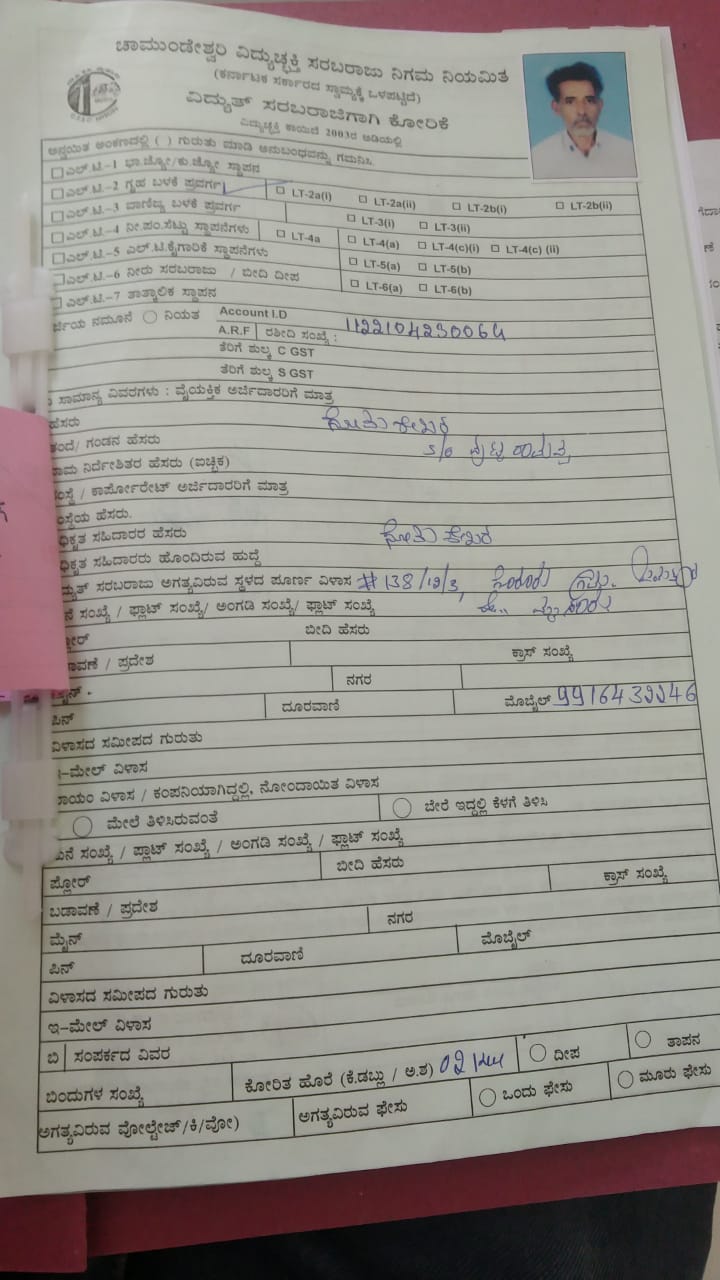 ಚಾಮುಂಡೇಶ್ವರಿ ವಿದ್ಯುಚ್ಛಕ್ತಿ ಸರಬರಾಜು ನಿಗಮ ನಿಯಮಿತ
(ಕರ್ನಾಟಕ ಸರ್ಕಾರದ ಸ್ವಾಮ್ಯಕ್ಕೆ ಒಳಪಟ್ಟಿದೆ)
ವಿದ್ಯುತ್ ಸರಬರಾಜಿಗಾಗಿ ಕೋರಿಕೆ
ವಿದ್ಯುಚ್ಛಕ್ತಿ ಕಾಯಿದೆ 2003ರ ಅಡಿಯಲ್ಲಿ
ಅನ್ವಯಿತ ಅಂಕಣದಲ್ಲಿ ( ) ಗುರುತು ಮಾಡಿ ಅನುಬಂಧವನ್ನು ಗಮನಿಸಿ
ಎಲ್.ಟಿ.-1 ಭಾ.ಜ್ಯೋ/ಕು.ಜ್ಯೋ ಸ್ಥಾಪನ
ಎಲ್.ಟಿ.-2 ಗೃಹ ಬಳಕೆ ಪ್ರವರ್ಗ LT-2a(i) LT-2a(ii) LT-2b(i) LT-2b(ii)
ಎಲ್.ಟಿ.-3 ವಾಣಿಜ್ಯ ಬಳಕೆ ಪ್ರವರ್ಗ LT-3(i) LT-3(ii)
ಎಲ್.ಟಿ.-4 ನೀ.ಪಂ.ಸೆಟ್ಟು ಸ್ಥಾಪನೆಗಳು LT-4a LT-4(a) LT-4(c)(i) LT-4(c) (ii)
ಎಲ್.ಟಿ.-5 ಎಲ್.ಟಿ.ಕೈಗಾರಿಕೆ ಸ್ಥಾಪನೆಗಳು LT-5(a) LT-5(b)
ಎಲ್.ಟಿ.-6 ನೀರು ಸರಬರಾಜು / ಬೀದಿ ದೀಪ LT-6(a) LT-6(b)
ಎಲ್.ಟಿ.-7 ತಾತ್ಕಾಲಿಕ ಸ್ಥಾಪನ
ರ್ಜಿಯ ನಮೂನೆ ನಿಯತ Account I.D
A.R.F ರಶೀದಿ ಸಂಖ್ಯೆ : 1122104230064
ತೆರಿಗೆ ಶುಲ್ಕ C GST
ತೆರಿಗೆ ಶುಲ್ಕ S GST
ಸಾಮಾನ್ಯ ವಿವರಗಳು : ವೈಯಕ್ತಿಕ ಅರ್ಜಿದಾರರಿಗೆ ಮಾತ್ರ
ಹೆಸರು
ತಂದೆ/ ಗಂಡನ ಹೆಸರು S/o
ನಾಮ ನಿರ್ದೇಶಿತರ ಹೆಸರು (ಐಚ್ಛಿಕ)
ಸಂಸ್ಥೆ / ಕಾರ್ಪೋರೇಟ್ ಅರ್ಜಿದಾರರಿಗೆ ಮಾತ್ರ
ಸಂಸ್ಥೆಯ ಹೆಸರು.
ಧಿಕೃತ ಸಹಿದಾರರ ಹೆಸರು
ಧಿಕೃತ ಸಹಿದಾರರು ಹೊಂದಿರುವ ಹುದ್ದೆ
ದ್ಯುತ್ ಸರಬರಾಜು ಅಗತ್ಯವಿರುವ ಸ್ಥಳದ ಪೂರ್ಣ ವಿಳಾಸ # 138/19/3,
ನೆ ಸಂಖ್ಯೆ / ಫ್ಲಾಟ್ ಸಂಖ್ಯೆ/ ಅಂಗಡಿ ಸಂಖ್ಯೆ/ ಫ್ಲಾಟ್ ಸಂಖ್ಯೆ
ಲೋರ್ ಬೀದಿ ಹೆಸರು
ಾವಣೆ / ಪ್ರದೇಶ ಕ್ರಾಸ್ ಸಂಖ್ಯೆ
ಮೈನ್ - ನಗರ
ಪಿನ್ ದೂರವಾಣಿ ಮೊಬೈಲ್ 9916432246
ವಿಳಾಸದ ಸಮೀಪದ ಗುರುತು
ಇ-ಮೇಲ್ ವಿಳಾಸ
ಖಾಯಂ ವಿಳಾಸ / ಕಂಪನಿಯಾಗಿದ್ದಲ್ಲಿ, ನೋಂದಾಯಿತ ವಿಳಾಸ
ಮೇಲೆ ತಿಳಿಸಿರುವಂತೆ ಬೇರೆ ಇದ್ದಲ್ಲಿ ಕೆಳಗೆ ತಿಳಿಸಿ
ಮನೆ ಸಂಖ್ಯೆ / ಪ್ಲಾಟ್ ಸಂಖ್ಯೆ / ಅಂಗಡಿ ಸಂಖ್ಯೆ / ಫ್ಲಾಟ್ ಸಂಖ್ಯೆ
ಫ್ಲೋರ್ ಬೀದಿ ಹೆಸರು
ಬಡಾವಣೆ / ಪ್ರದೇಶ ಕ್ರಾಸ್ ಸಂಖ್ಯೆ
ಮೈನ್ ನಗರ
ಪಿನ್ ದೂರವಾಣಿ ಮೊಬೈಲ್
ವಿಳಾಸದ ಸಮೀಪದ ಗುರುತು
ಇ-ಮೇಲ್ ವಿಳಾಸ
ಬಿ ಸಂಪರ್ಕದ ವಿವರ
ಬಿಂದುಗಳ ಸಂಖ್ಯೆ ಕೋರಿತ ಹೊರೆ (ಕೆ.ಡಬ್ಲು / ಅ.ಶ) 02 ದೀಪ ತಾಪನ
ಅಗತ್ಯವಿರುವ ವೋಲ್ಟೇಜ್/ಕಿ/ವೋ) ಅಗತ್ಯವಿರುವ ಫೇಸು ಒಂದು ಫೇಸು ಮೂರು ಫೇಸು